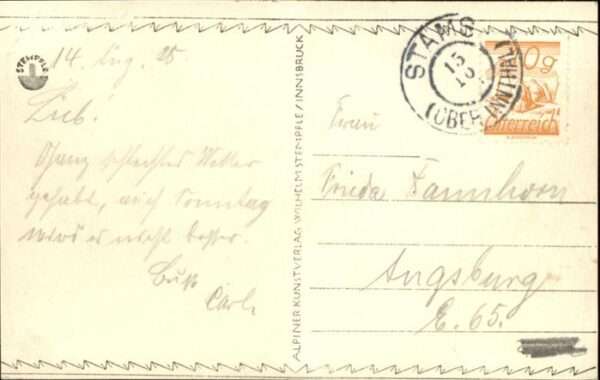 STEMPFLE
14. Aug. 25
Lieb!
Ganz schlechtes Wetter
gehabt, auch Sonntag
wird es nicht besser.
Carl.
ALPINER KUNSTVERLAG WILHELM STEMPFLE / INNSBRUCK
STAMS
15
(OBERINNTHAL)
0g
Österreich
Frau
Frieda Tannhorn
Augsburg
E. 65.